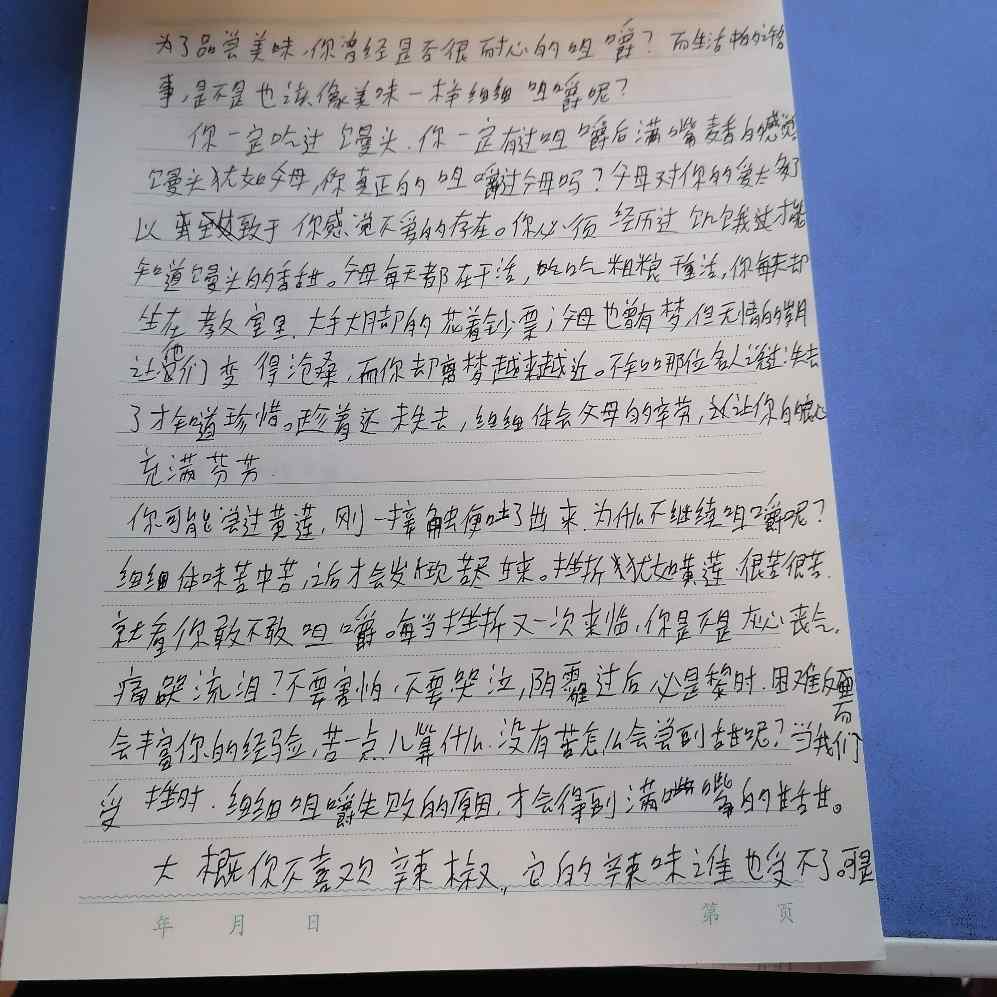 为了品尝美味,你曾经是否很耐心的咀嚼?而生活中的诸
事,是不是也该像美味一样细细咀嚼呢?
你一定吃过馒头.你一定有过咀嚼后满嘴麦香的感觉
馒头犹如父母,你真正的咀嚼过父母吗?父母对你的爱太多了
以致于你感觉不爱的存在。你必须经历过饥饿过才能
知道馒头的香甜。父母每天都在干活,吃吃粗粮干重活,你每天却
坐在教室里.大手大脚的花着钞票;父母也曾有梦,但无情的岁月
让他们变得沧桑,而你却离梦越来越近。不知哪位名人说过:失去
了才知道珍惜。趁着还未失去,细细体会父母的辛劳,这让你的心
充满芬芳.
你可能尝过黄莲,刚一接触便吐了出来.为什么不继续咀嚼呢?
细细体味苦中苦,之后才会发现苦尽甘来。挫折犹如黄莲.很苦很苦.
就看你敢不敢咀嚼。每当挫折又一次来临,你是不是灰心丧气.
痛哭流泪?不要害怕.不要哭泣,阴霾过后必是黎时.困难反而
会丰富你的经验,苦一点儿算什么.没有苦怎么会尝到甜呢?当我们
受挫时.细细咀嚼失败的原因.才会得到满嘴的甘甜。
大概你不喜欢辣椒,它的辣味谁也受不了。可是
年 月 日 第 页